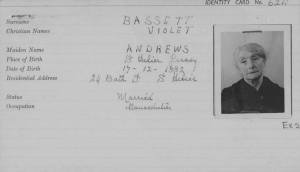 IDENTITY CARD No. 6211
Surname BASSETT
Christian Names VIOLET
Maiden Name ANDREWS
Place of Birth St Helier Jersey
Date of Birth 17-12-1882
Residential Address 24 Bath St St Helier
Status Married
Occupation Housewife
Ex 2